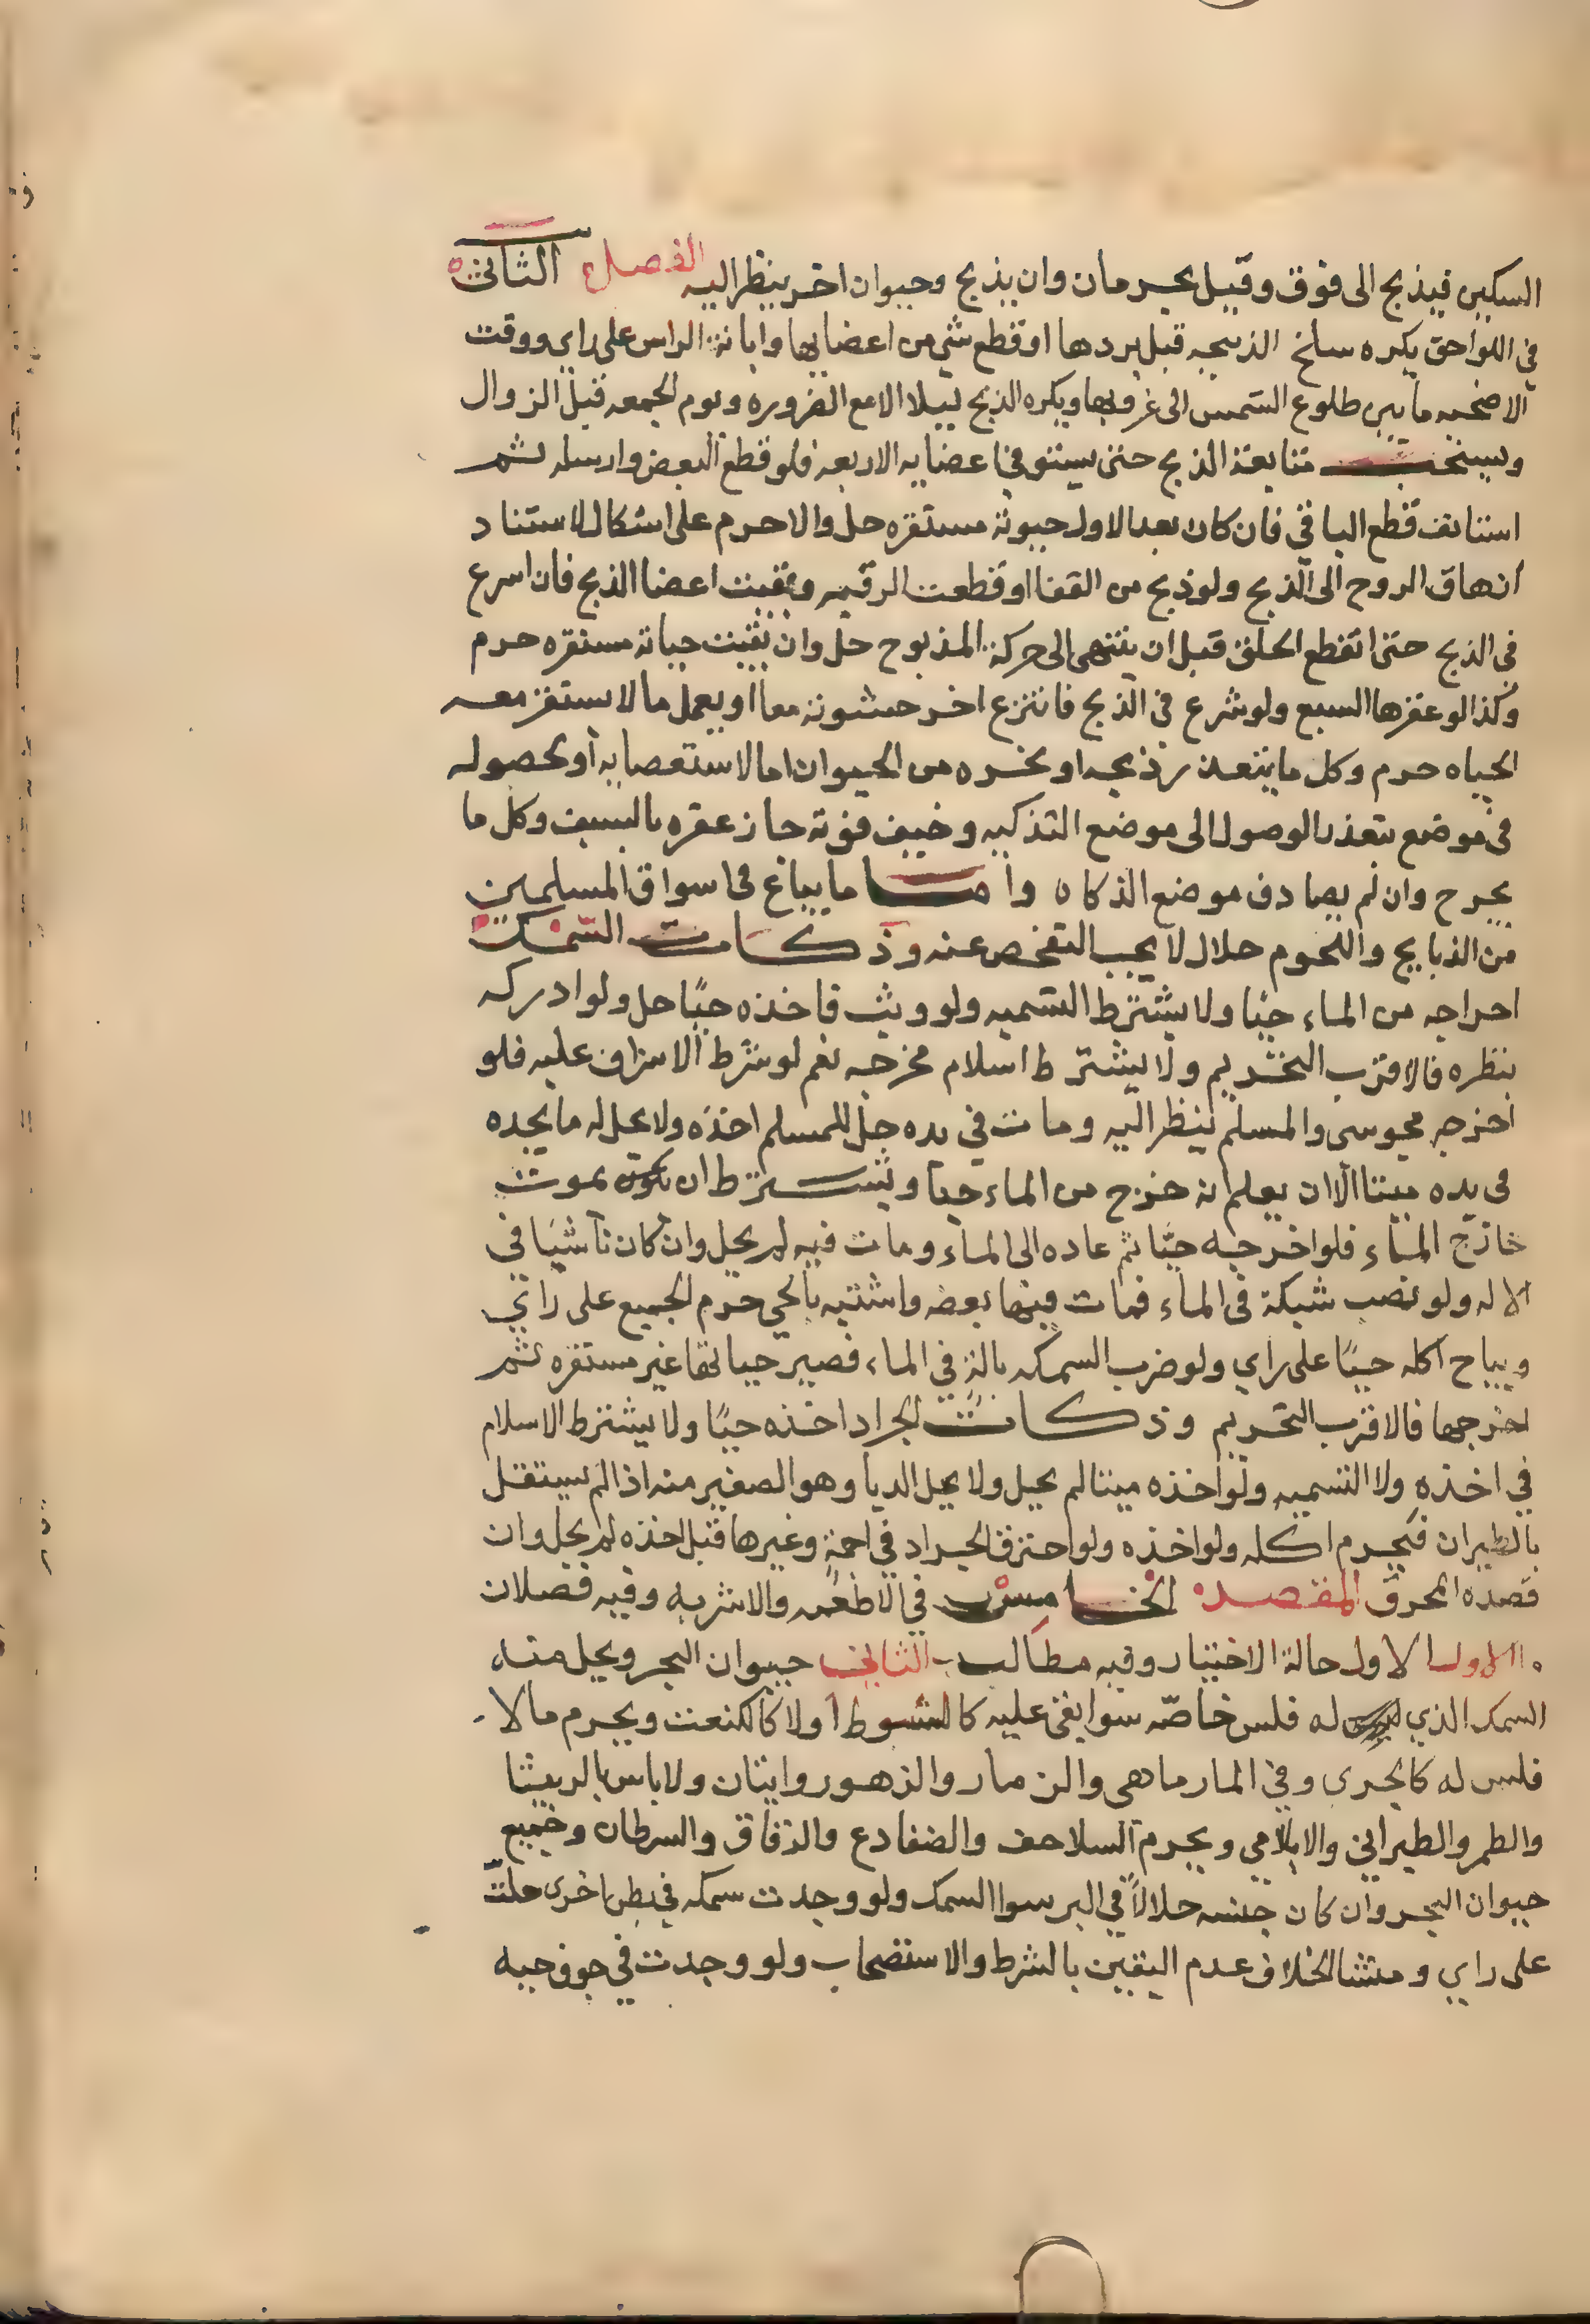 السكين فيذبح الى فوق وقيل يحرمان وان يذبح وحيوان اخر ينظر اليه الفصل الثاني
في اللواحق يكره سلخ الذبيحه قبل بردها او قطع شي من اعضايها وابانة الراس على راي ووقت
الاضحيه ما بين طلوع الشمس الى غروبها ويكره الذبح ليلا الا مع الضروره ويوم الجمعه قبل الزوال
ويستحب متابعة الذبح حتى يستوفي اعضايه الاربعه فلو قطع البعض وارسله ثم
استانف قطع الباقي فان كان بعد الاول حيوته مستقره حل والا حرم على اشكال لاستناد
ازهاق الروح الى الذبح ولو ذبح من القفا او قطعت الرقبه وبقيت اعضا الذبح فان اسرع
في الذبح حتى انقطع الحلق قبل ان ينتهى الى حركة المذبوح حل وان بقيت حياته مستقره حرم
وكذا لو عقرها السبع ولو شرع في الذبح فانتزع اخر حشوته معا او يعمل ما لا يستقر معه
الحياه حرم وكل ما يتعذر ذبحه او نحره من الحيوان اما لاستعصايه او لحصوله
في موضع يتعذر الوصول الى موضع التذكيه وخيف فوته جاز عقره بالسيف وكل ما
يجرح وان لم يصادف موضع الذكاه واما ما يباع في اسواق المسلمين
من الذبايح واللحوم حلال لا يجب التفحص عنه وذكات السمك
اخراجه من الماء حيا ولا يشترط التسميه ولو وثب فاخذه حيًا حل ولو ادركه
بنظره فالاقرب التحريم ولا يشترط اسلام مخرجه نعم لو شرط الاشراف عليه فلو
اخرجه مجوسى والمسلم ينظر اليه ومات في يده حل للمسلم اخذه ولا يحل له ما يجده
في يده ميتا الا ان يعلم انه خرج من الماء حيا ويشترط ان يكون يموت
خارج الماء فلو اخرجه حيًا ثم عاده الى الماء ومات فيه لم يحل وان كان ناشيًا في
الاله ولو نصب شبكة في الماء فمات فيها بعضه واشتبه بالحي حرم الجميع على راي
ويباح اكله حيًا على راي ولو ضرب السمكه بالةٍ في الماء فصير حياتها غير مستقره ثم
اخرجها فالاقرب التحريم وذكات الجراد اخذه حيًا ولا يشترط الاسلام
في اخذه ولا التسميه ولو اخذه ميتا لم يحل ولا يحل الدبا وهو الصغير منه اذا لم يستقل
بالطيران فيحرم اكله ولو اخذه ولو احترق الجراد في اجمةٍ وغيرها قبل اخذه لم يحل وان
قصده المحرق المقصد الخامس في الاطعمه والاشربه وفيه فصلان
الاول الاول حالة الاختيار وفيه مطالب الثاني حيوان البحر ويحل منه
السمك الذي له فلس خاصّه سوا بقي عليه كالشبوط او لا كالكنعت ويحرم ما لا
فلس له كالجري وفي المارماهي والزمار والزهو روايتان ولا باس بالربيثا
والطمر والطيراني والابلامي ويحرم السلاحف والضفادع والرقاق والسرطان وجميع
حيوان البحر وان كان جنسه حلالاً في البر سوا السمك ولو وجدت سمكه في بطن اخرى حلتّ
على راي ومنشا الخلاف عدم اليقين بالشرط والاستصحاب ولو وجدت في جوف حيه